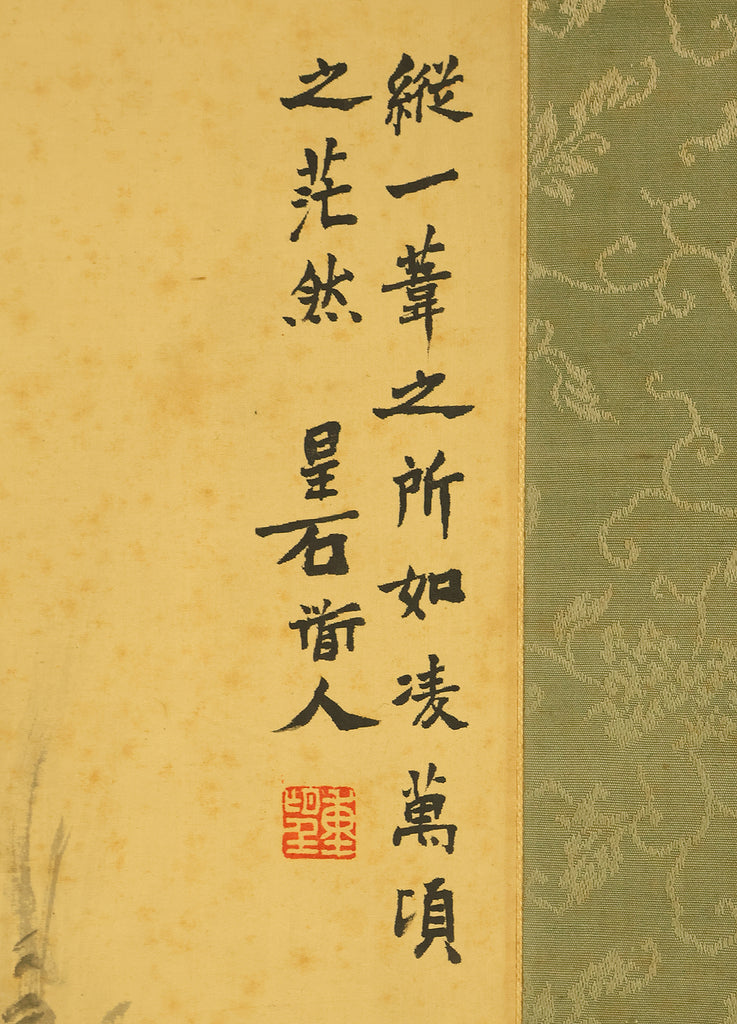 縱一葦之所如凌萬頃
之茫然
星石衜人